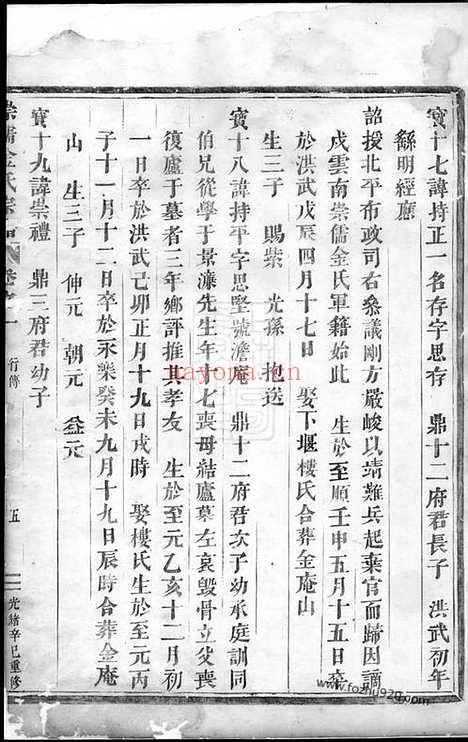 寳十七諱持正一名存字思存　鼎十二府君長子　洪武初年
繇明經應
詔授北平布政司右叅議剛方嚴峻以靖難兵起棄官而歸因謫
戍雲南崇儒金氏軍籍始此　生於至順壬申五月十五日卒
於洪武戊辰四月十七日　娶下堰樓氏合葬金庵山
生三子　賜紫　光孫　地送
寳十八諱持平字思堅號澹庵　鼎十二府君次子幼承庭訓同
伯兄從學于景濂先生年十七喪母結廬墓左哀毀骨立父喪
復廬于墓者三年鄉評推其孝友　生於至元乙亥十二月初
一日卒於洪武己卯正月十九日戌時　娶樓氏生於至元丙
子十一月十二日卒於永樂癸未九月十九日辰時合葬金庵
山　生三子　伸元　朝元　益元
寳十九諱崇禮　鼎三府君幼子
崇儒金氏宗譜
行傳
五
光緒辛巳重修
nayona.cn
www.fozhu920.com